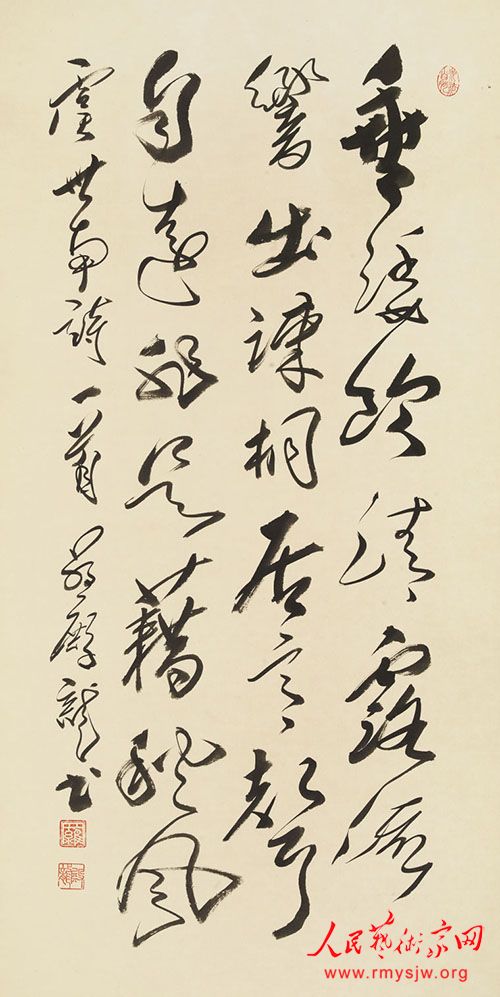 垂緌飲清露流
響出疎桐居高聲
自遠非是藉秋風
虞世南詩一首 龍書
人民藝術家网
www.rmysjw.org